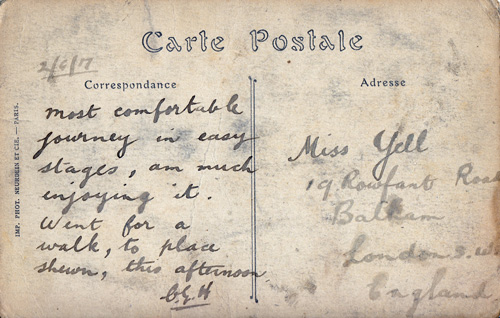 Carte Postale
2/6/17
Correspondance
Adresse
most comfortable
journey in easy
stages, am much
enjoying it.
Went for a
walk, to place
shewn, this afternoon
Miss Yell
19 Rowfant Road
Balham
London S.W.
England
IMP. PHOT. NEURDEIN ET CIE. — PARIS.